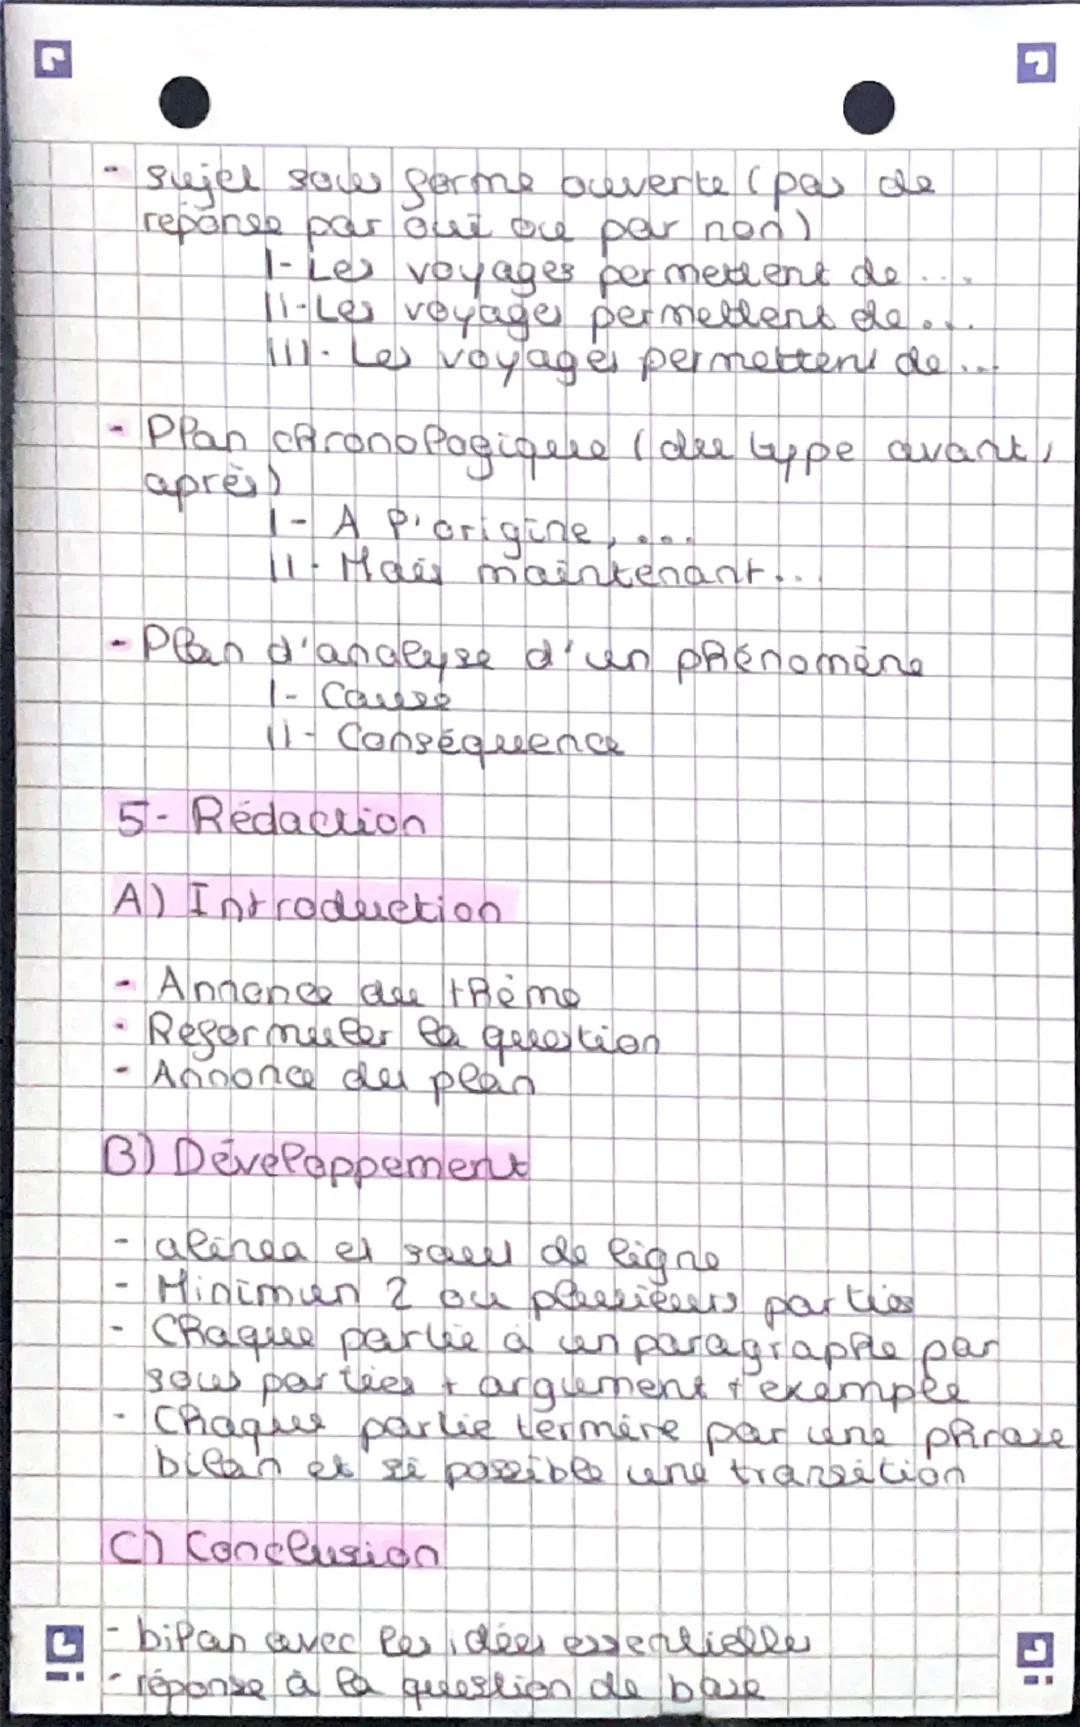 - sujet sous forme ouverte (pas de
réponse par oui ou par non)
I- Les voyages permettent de ...
II- Les voyages permettent de ...
III- Les voyages permettent de ...
- Plan chronologique (du type avant,
après)
I- A l'origine, ...
II- Mais maintenant...
- Plan d'analyse d'un phénomène
I- Cause
II- Conséquence
5- Rédaction
A) Introduction
- Annonce du thème
- Reformuler la question
- Annonce du plan
B) Développement
- alinéa et saut de ligne
- Minimun 2 ou plusieurs parties
- Chaque partie à un paragraphe par
sous parties + argument + exemple
- Chaque partie termine par une phrase
bilan et si possible une transition
C) Conclusion
- bilan avec les idées essentielles
- réponse à la question de base